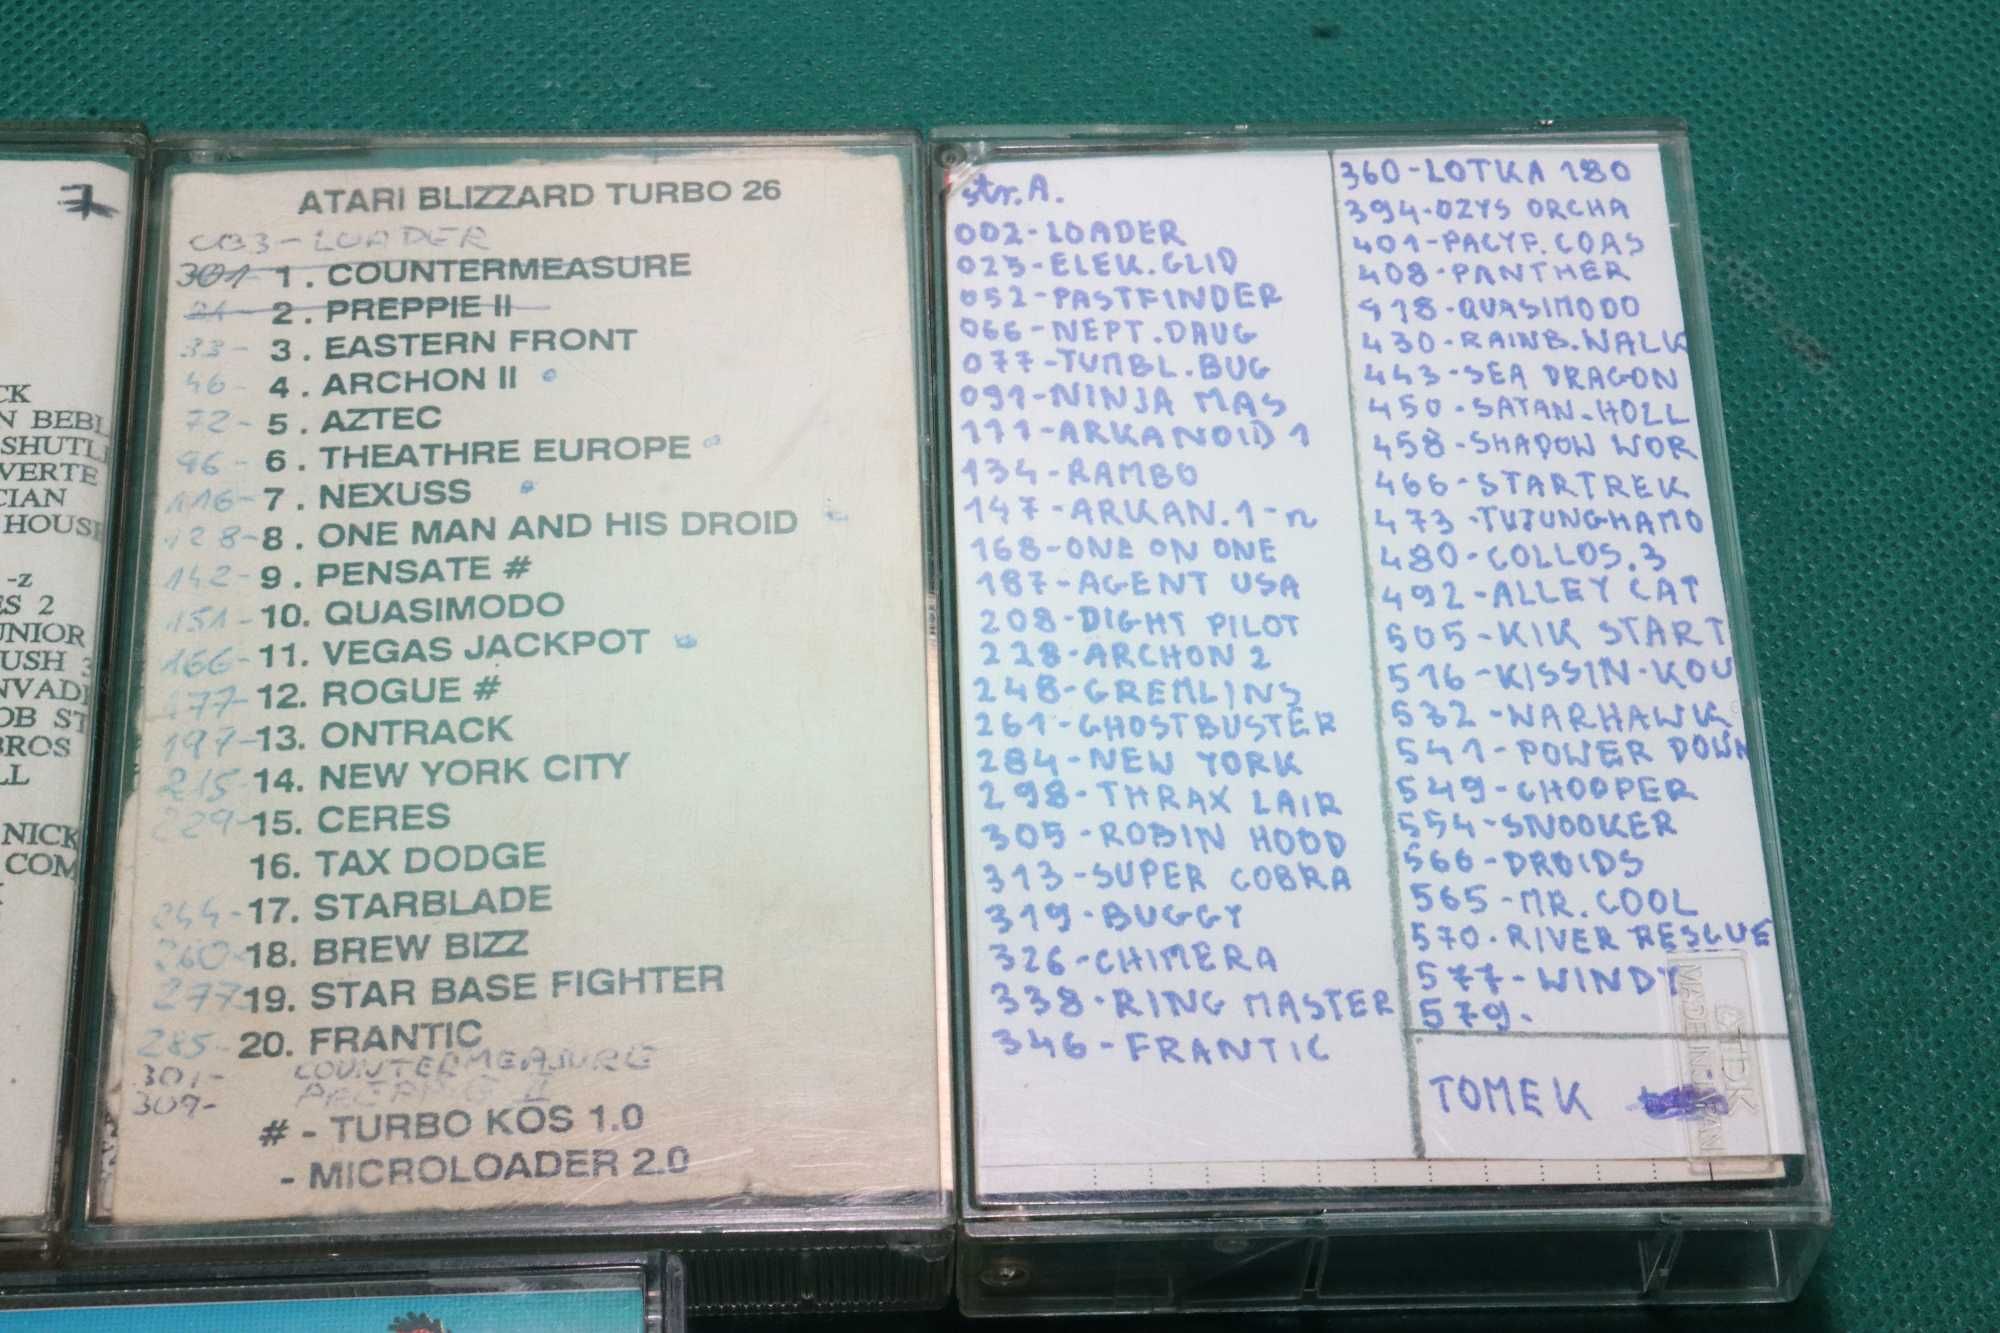 7
CK
N BEBL
SHUTL
VERTE
CIAN
HOUSE
-z
ES 2
UNIOR
USH 3
NVADE
OB ST
BROS
LL
NICK
COM
ATARI BLIZZARD TURBO 26
003-LOADER
301- 1. COUNTERMEASURE
2. PREPPIE II
33- 3. EASTERN FRONT
46- 4. ARCHON II
72- 5. AZTEC
96- 6. THEATHRE EUROPE
116- 7. NEXUSS
128- 8. ONE MAN AND HIS DROID
142- 9. PENSATE #
151- 10. QUASIMODO
166- 11. VEGAS JACKPOT
177- 12. ROGUE #
197- 13. ONTRACK
215- 14. NEW YORK CITY
229- 15. CERES
16. TAX DODGE
244- 17. STARBLADE
260- 18. BREW BIZZ
277- 19. STAR BASE FIGHTER
285- 20. FRANTIC
301- COUNTERMEASURE
309-
# - TURBO KOS 1.0
- MICROLOADER 2.0
str.A.
002-LOADER
023-ELEK.GLID
052-PASTFINDER
066-NEPT.DAUG
077-TUMBL.BUG
091-NINJA MAS
111-ARKANOID 1
134-RAMBO
147-ARKAN.1-n
168-ONE ON ONE
187-AGENT USA
208-DIGHT PILOT
228-ARCHON 2
248-GREMLINS
261-GHOSTBUSTER
284-NEW YORK
298-THRAX LAIR
305-ROBIN HOOD
313-SUPER COBRA
319-BUGGY
326-CHIMERA
338-RING MASTER
346-FRANTIC
360-LOTKA 180
394-OZYS ORCHA
401-PACYF.COAS
408-PANTHER
418-QUASIMODO
430-RAINB.WALK
443-SEA DRAGON
450-SATAN-HOLL
458-SHADOW WOR
466-STARTREK
473-TUTUNGHAMO
480-COLLOS.3
492-ALLEY CAT
505-KIK START
516-KISSIN-KOU
532-WARHAWK
541-POWER DOWN
549-CHOOPER
554-SNOOKER
560-DROIDS
565-MR.COOL
570-RIVER RESCUE
577-WINDY
579-
TOMEK
TDK
MADE IN JAPAN